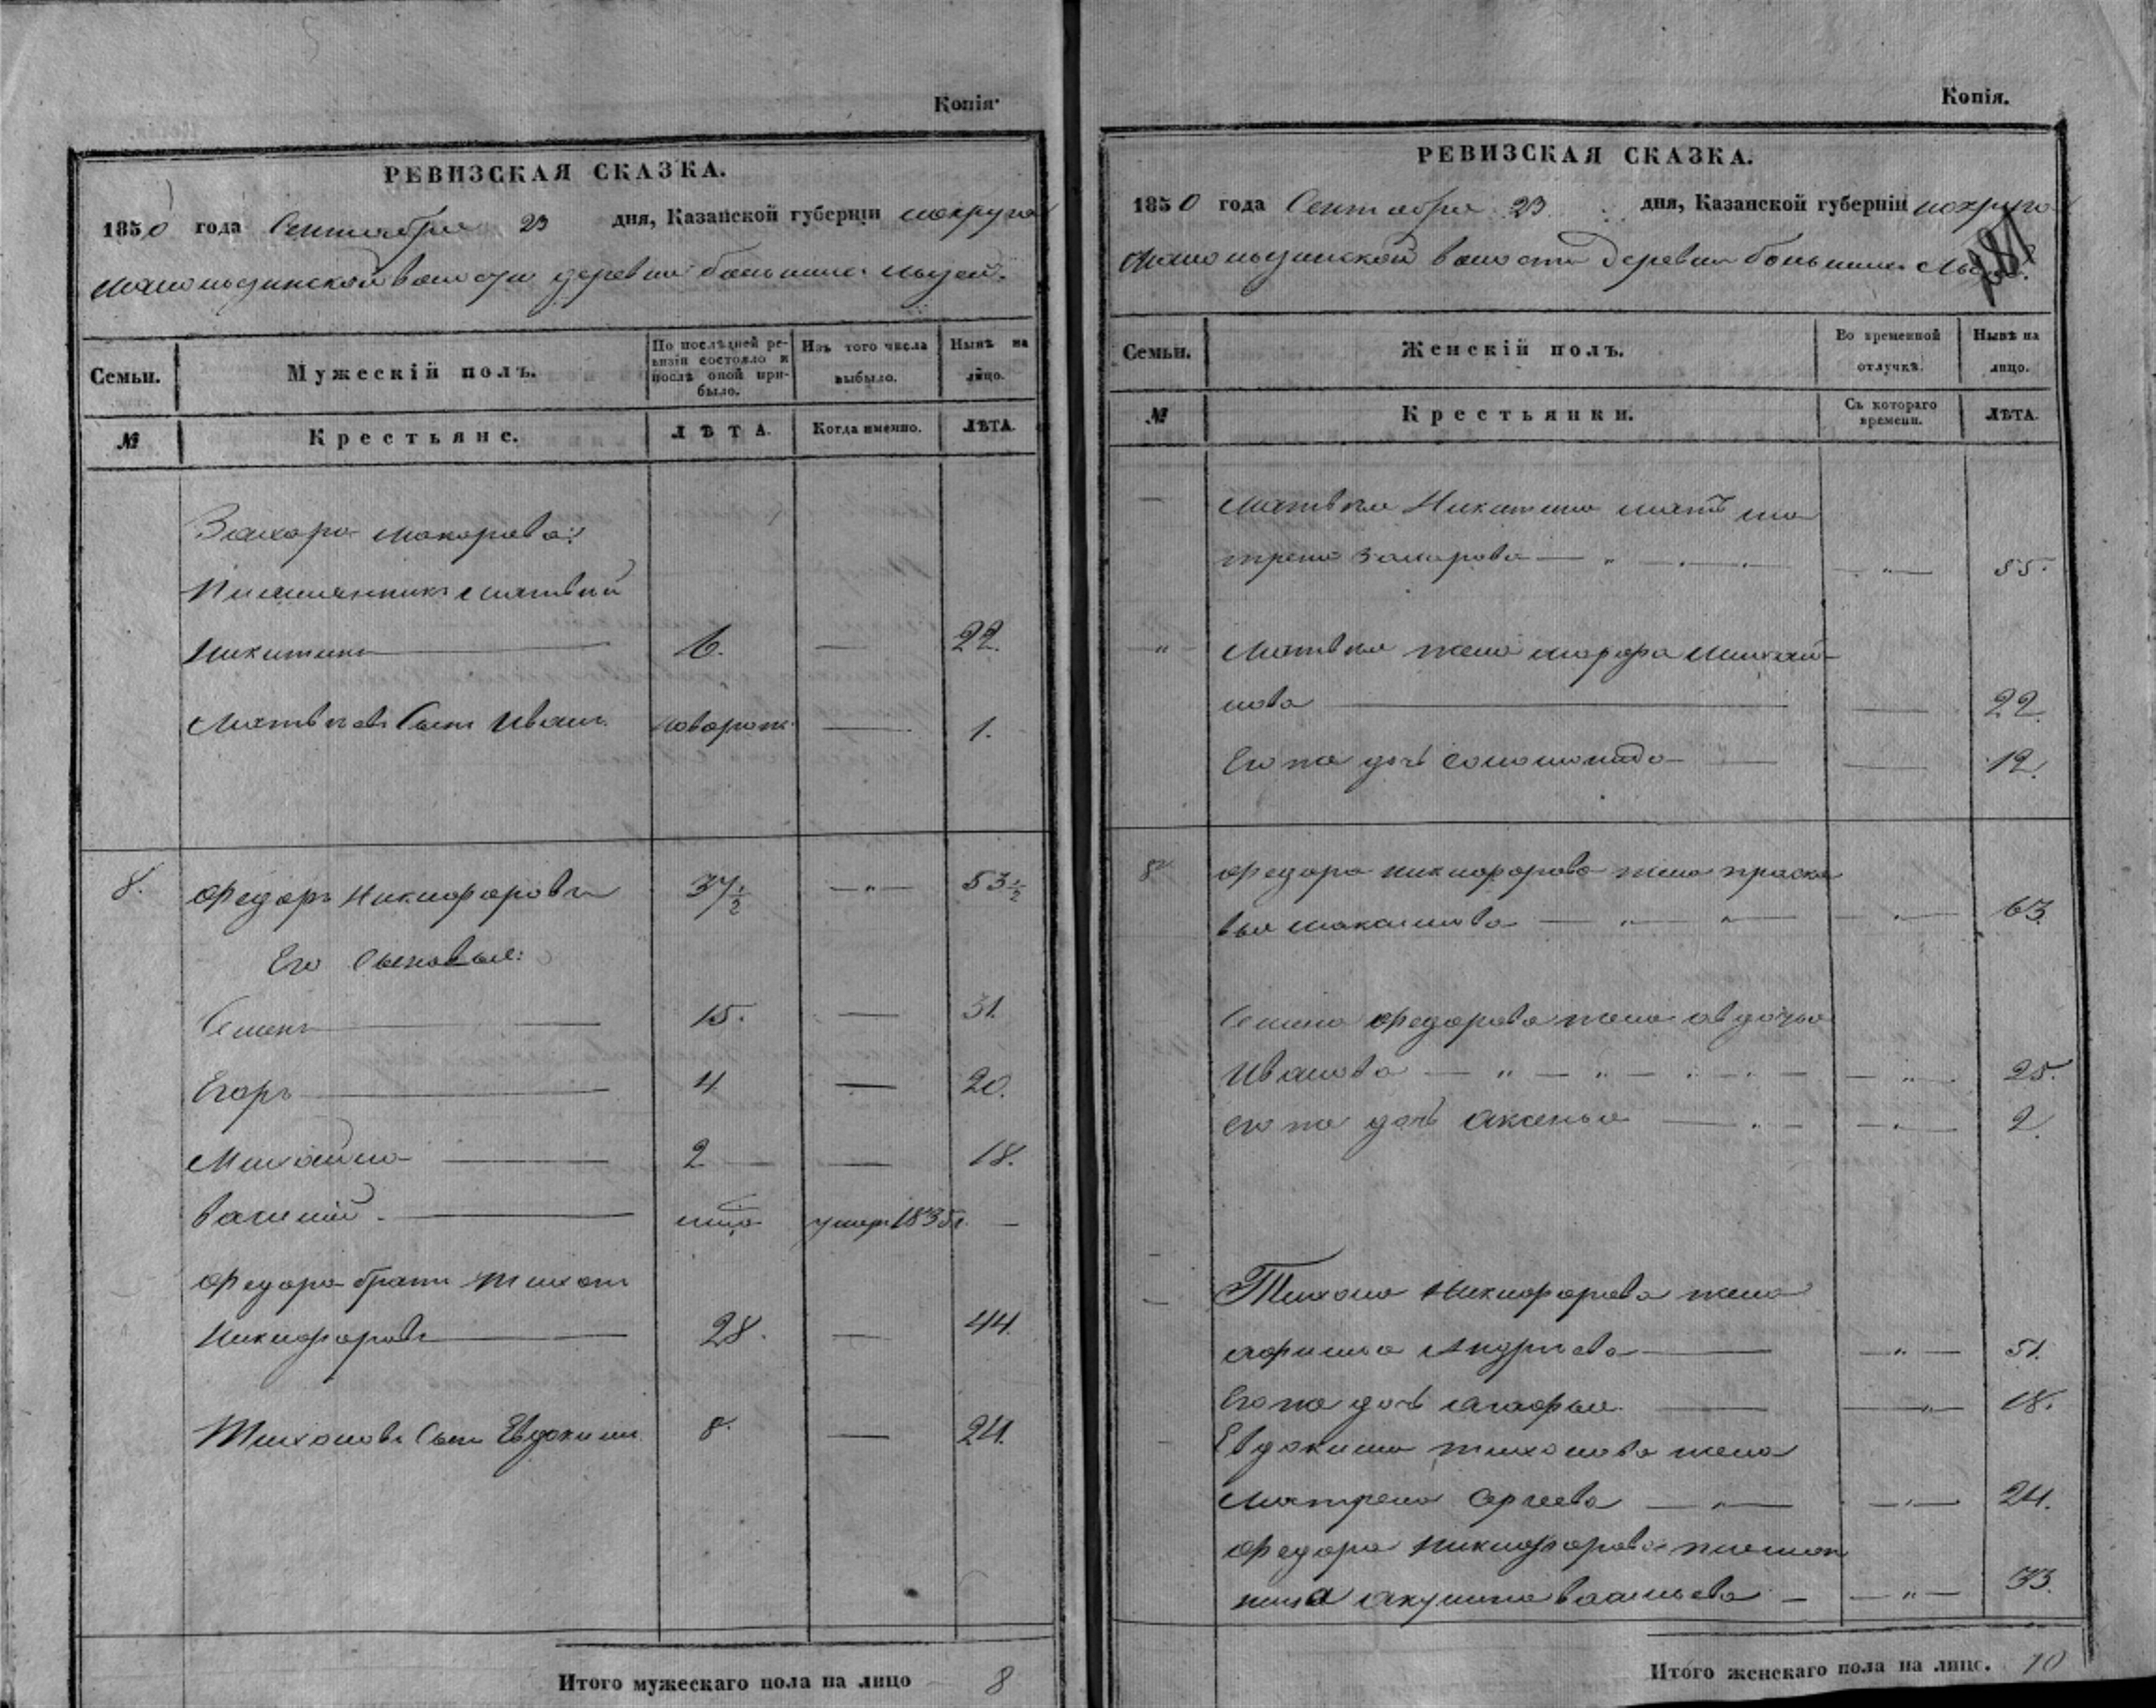 Копія
РЕВИЗСКАЯ СКАЗКА.
1850 года Сентября 23 дня, Казанской губерніи
волости деревни большихъ
Семьи.
Мужескій полъ.
По послѣдней ревизіи состояло и послѣ оной прибыло.
Изъ того числа выбыло.
Нынѣ на лицо.
№
Крестьяне.
ЛѢТА.
Когда именно.
ЛѢТА.
Захара Макарова:
Племянникъ Матвей
Никитинъ 6. — 22.
Матвеевъ Сынъ Иванъ новорож. — 1.
8. Федоръ Никифоровъ 37 1/2 — " — 53 1/2
Его Сыновья:
Семенъ 15. — 31.
Егоръ 4 — 20.
Михайло 2 — 18.
Василий умер 1835 г. —
Федора братъ Тихонъ
Никифоровъ 28. — 44.
Тихоновъ Сынъ Евдокимъ 8. — 24.
Итого мужескаго пола на лицо 8
Копія.
РЕВИЗСКАЯ СКАЗКА.
1850 года Сентября 23 дня, Казанской губерніи
волости деревни большихъ
Семьи.
Женскій полъ.
Во временной отлучкѣ.
Нынѣ на лицо.
№
Крестьянки.
Съ котораго времени.
ЛѢТА.
— Матвея Никитина мать ма
трена Захарова — " — 55.
" Матвея жена Марфа Михай-
лова — 22.
Его же дочь Соломонида — 12.
8 Федора Никифорова жена праско
вья Максимова — " — 63.
Семена Федорова жена авдотья
Иванова — " — 25.
его же дочь Аксенья — " — 2.
— Тихона Никифорова жена
афимья Андреева — " — 51.
Его же дочь агафья — " — 18.
Евдокима тихонова жена
Матрена Сергеева — " — 24.
Федора Никифорова племян
ница акулина васильева — " — 33.
Итого женскаго пола на лицо. 10